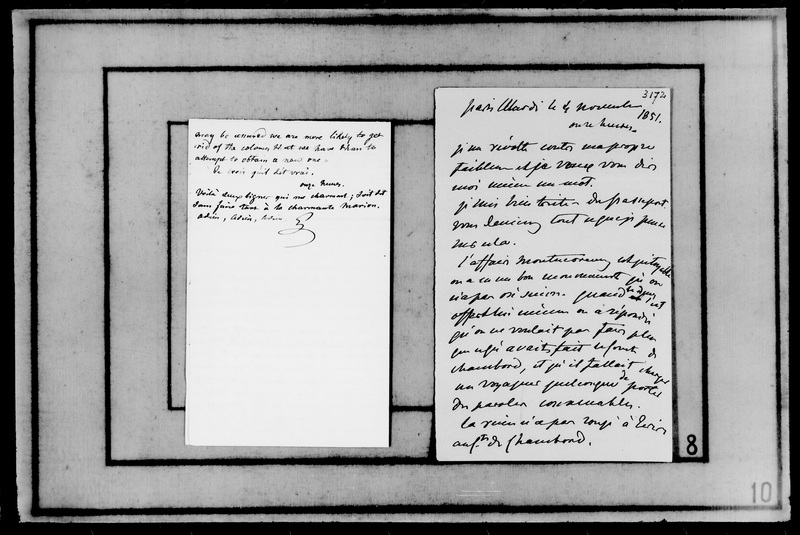 may be assured we are more likely to get
rid of the colonies that we have than to
attempt to obtain a new one.
Je crois qu'il dit vrai.
onze heures.
Voilà deux lignes qui me charment ; soit dit
sans faire tort à la charmante Marion.
Adieu, Adieu, Adieu
3172
Paris Mardi le 4 novembre
1851.
onze heures.
je me révolte contre ma propre
faiblesse et je veux vous dire
moi même un mot.
je suis bien tentée du passeport
vous devinez tout ce que je pense
sur cela.
l'affaire Montmorency est pitoyable
on a eu un bon mouvement qu'on
n'a pas osé suivre. quand
qu'on ne voulait pas faire plus
que ce qu'avait fait le Comte de
Chambord, et qu'il fallait charger
un voyageur quelconque de porter
des paroles convenables.
la reine n'a pas rougi à écrire
au Cte de Chambord.
8
10